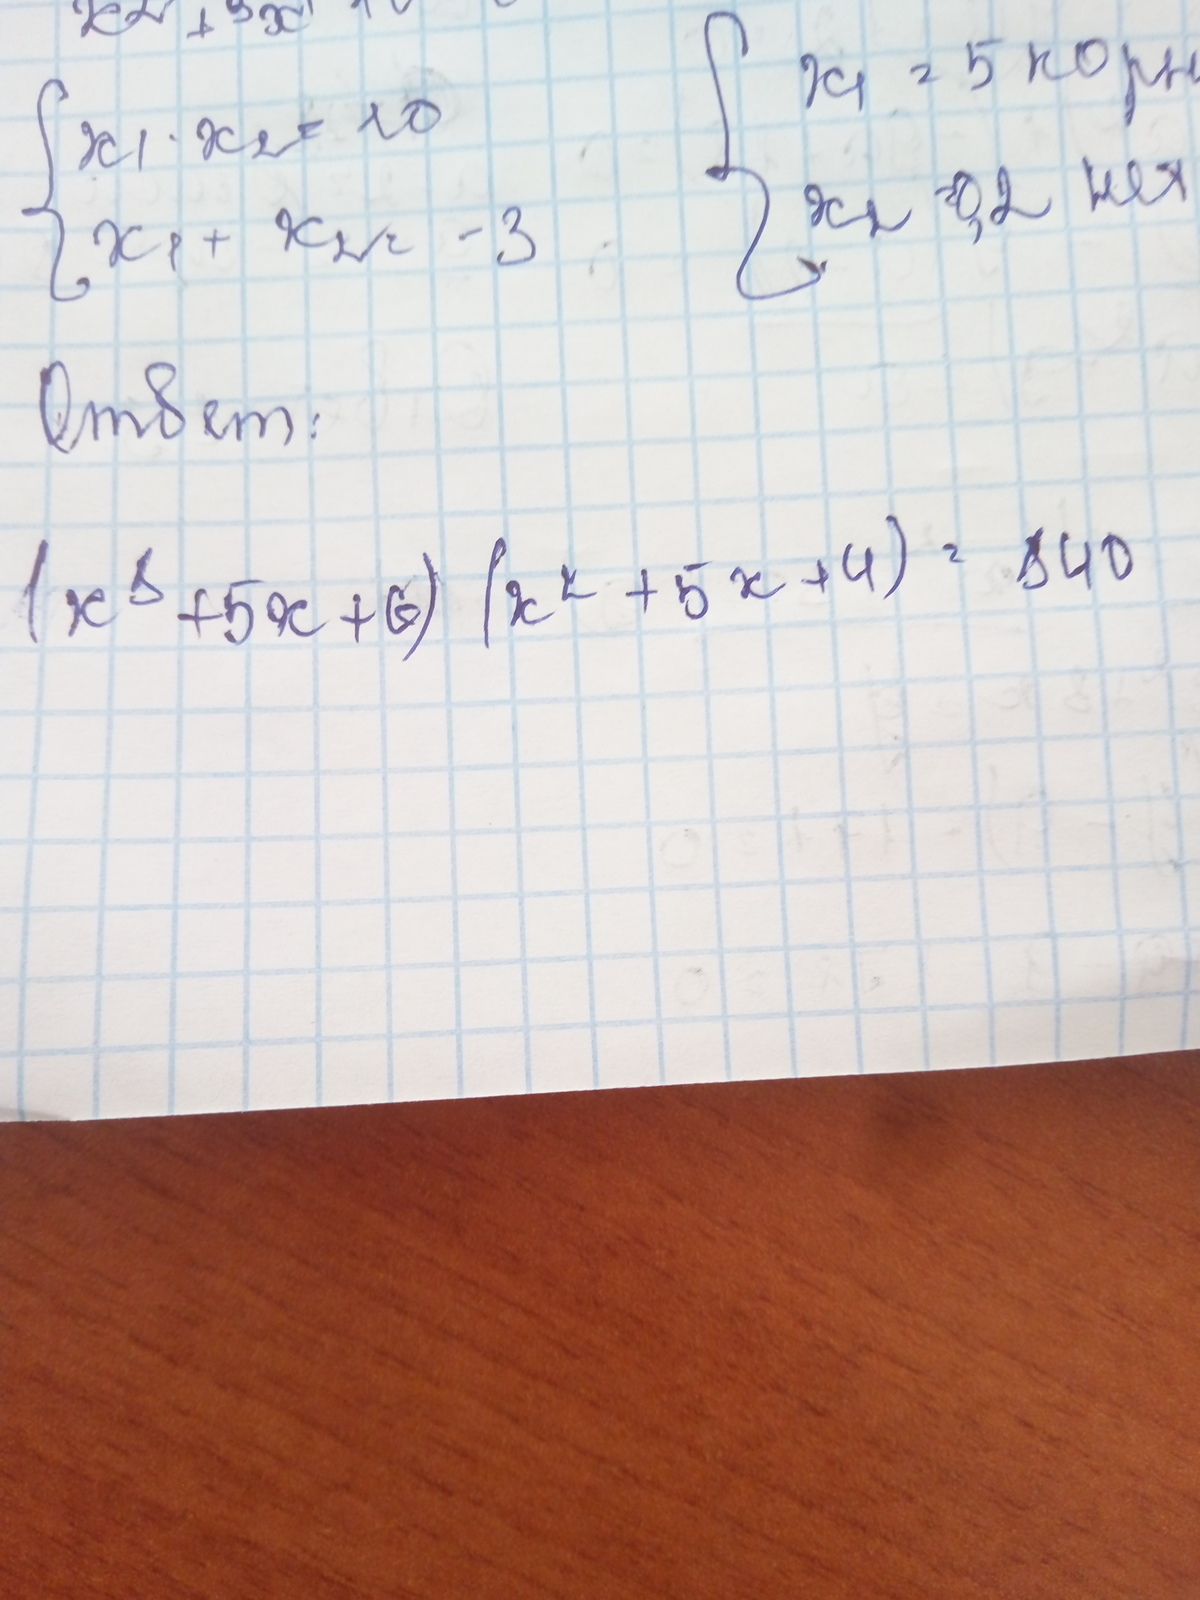 x2 + 3x
{ x1 · x2 = 10
x1 + x2 = -3
{ x1 = 5 корн
x2 = 0,2 нет
Ответ:
(x² + 5x + 6) (x² + 5x + 4) = 840